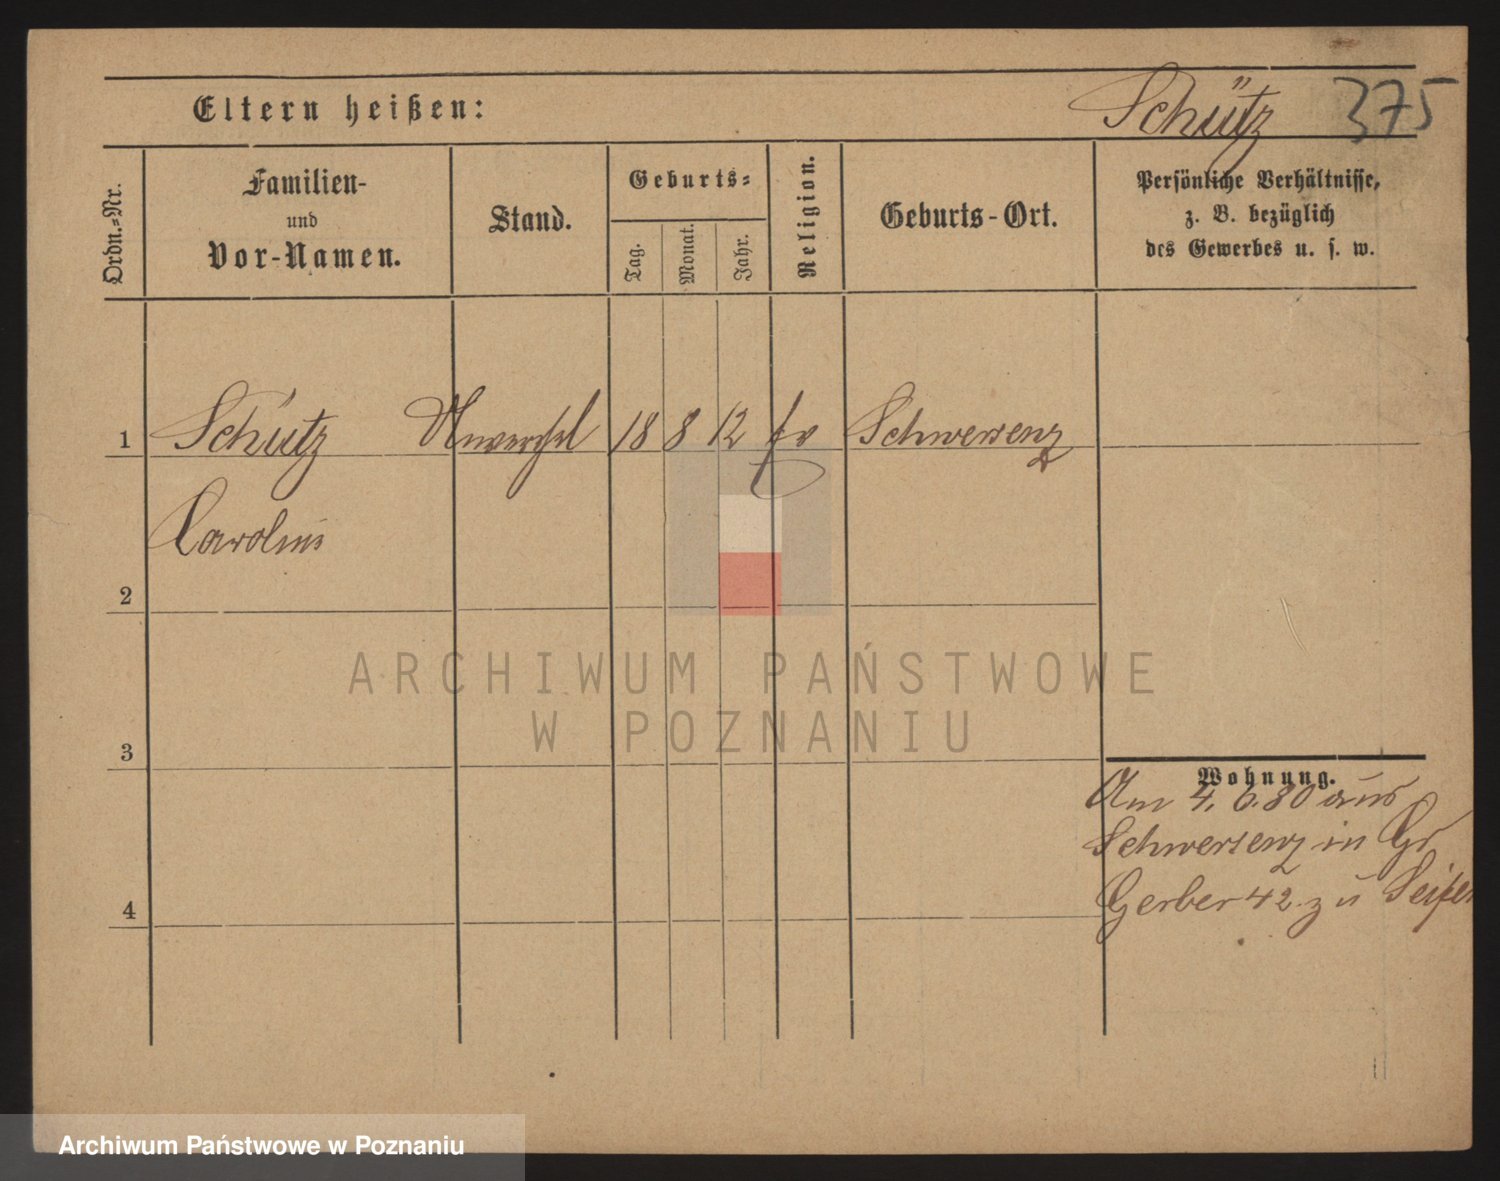 Eltern heißen:
Schütz 375
Ordn.-Nr.
Familien-
und
Vor-Namen.
Stand.
Geburts-
Tag.
Monat.
Jahr.
Religion.
Geburts-Ort.
Persönliche Verhältnisse,
z. B. bezüglich
des Gewerbes u. s. w.
1 Schütz Unverehel 18 8 12 ev Schwersenz
Caroline
2
3
4
Wohnung.
Am 4. 6. 80 aus
Schwersenz in Gr
Gerber 42 zu Seifer
ARCHIWUM PAŃSTWOWE
W POZNANIU
Archiwum Państwowe w Poznaniu